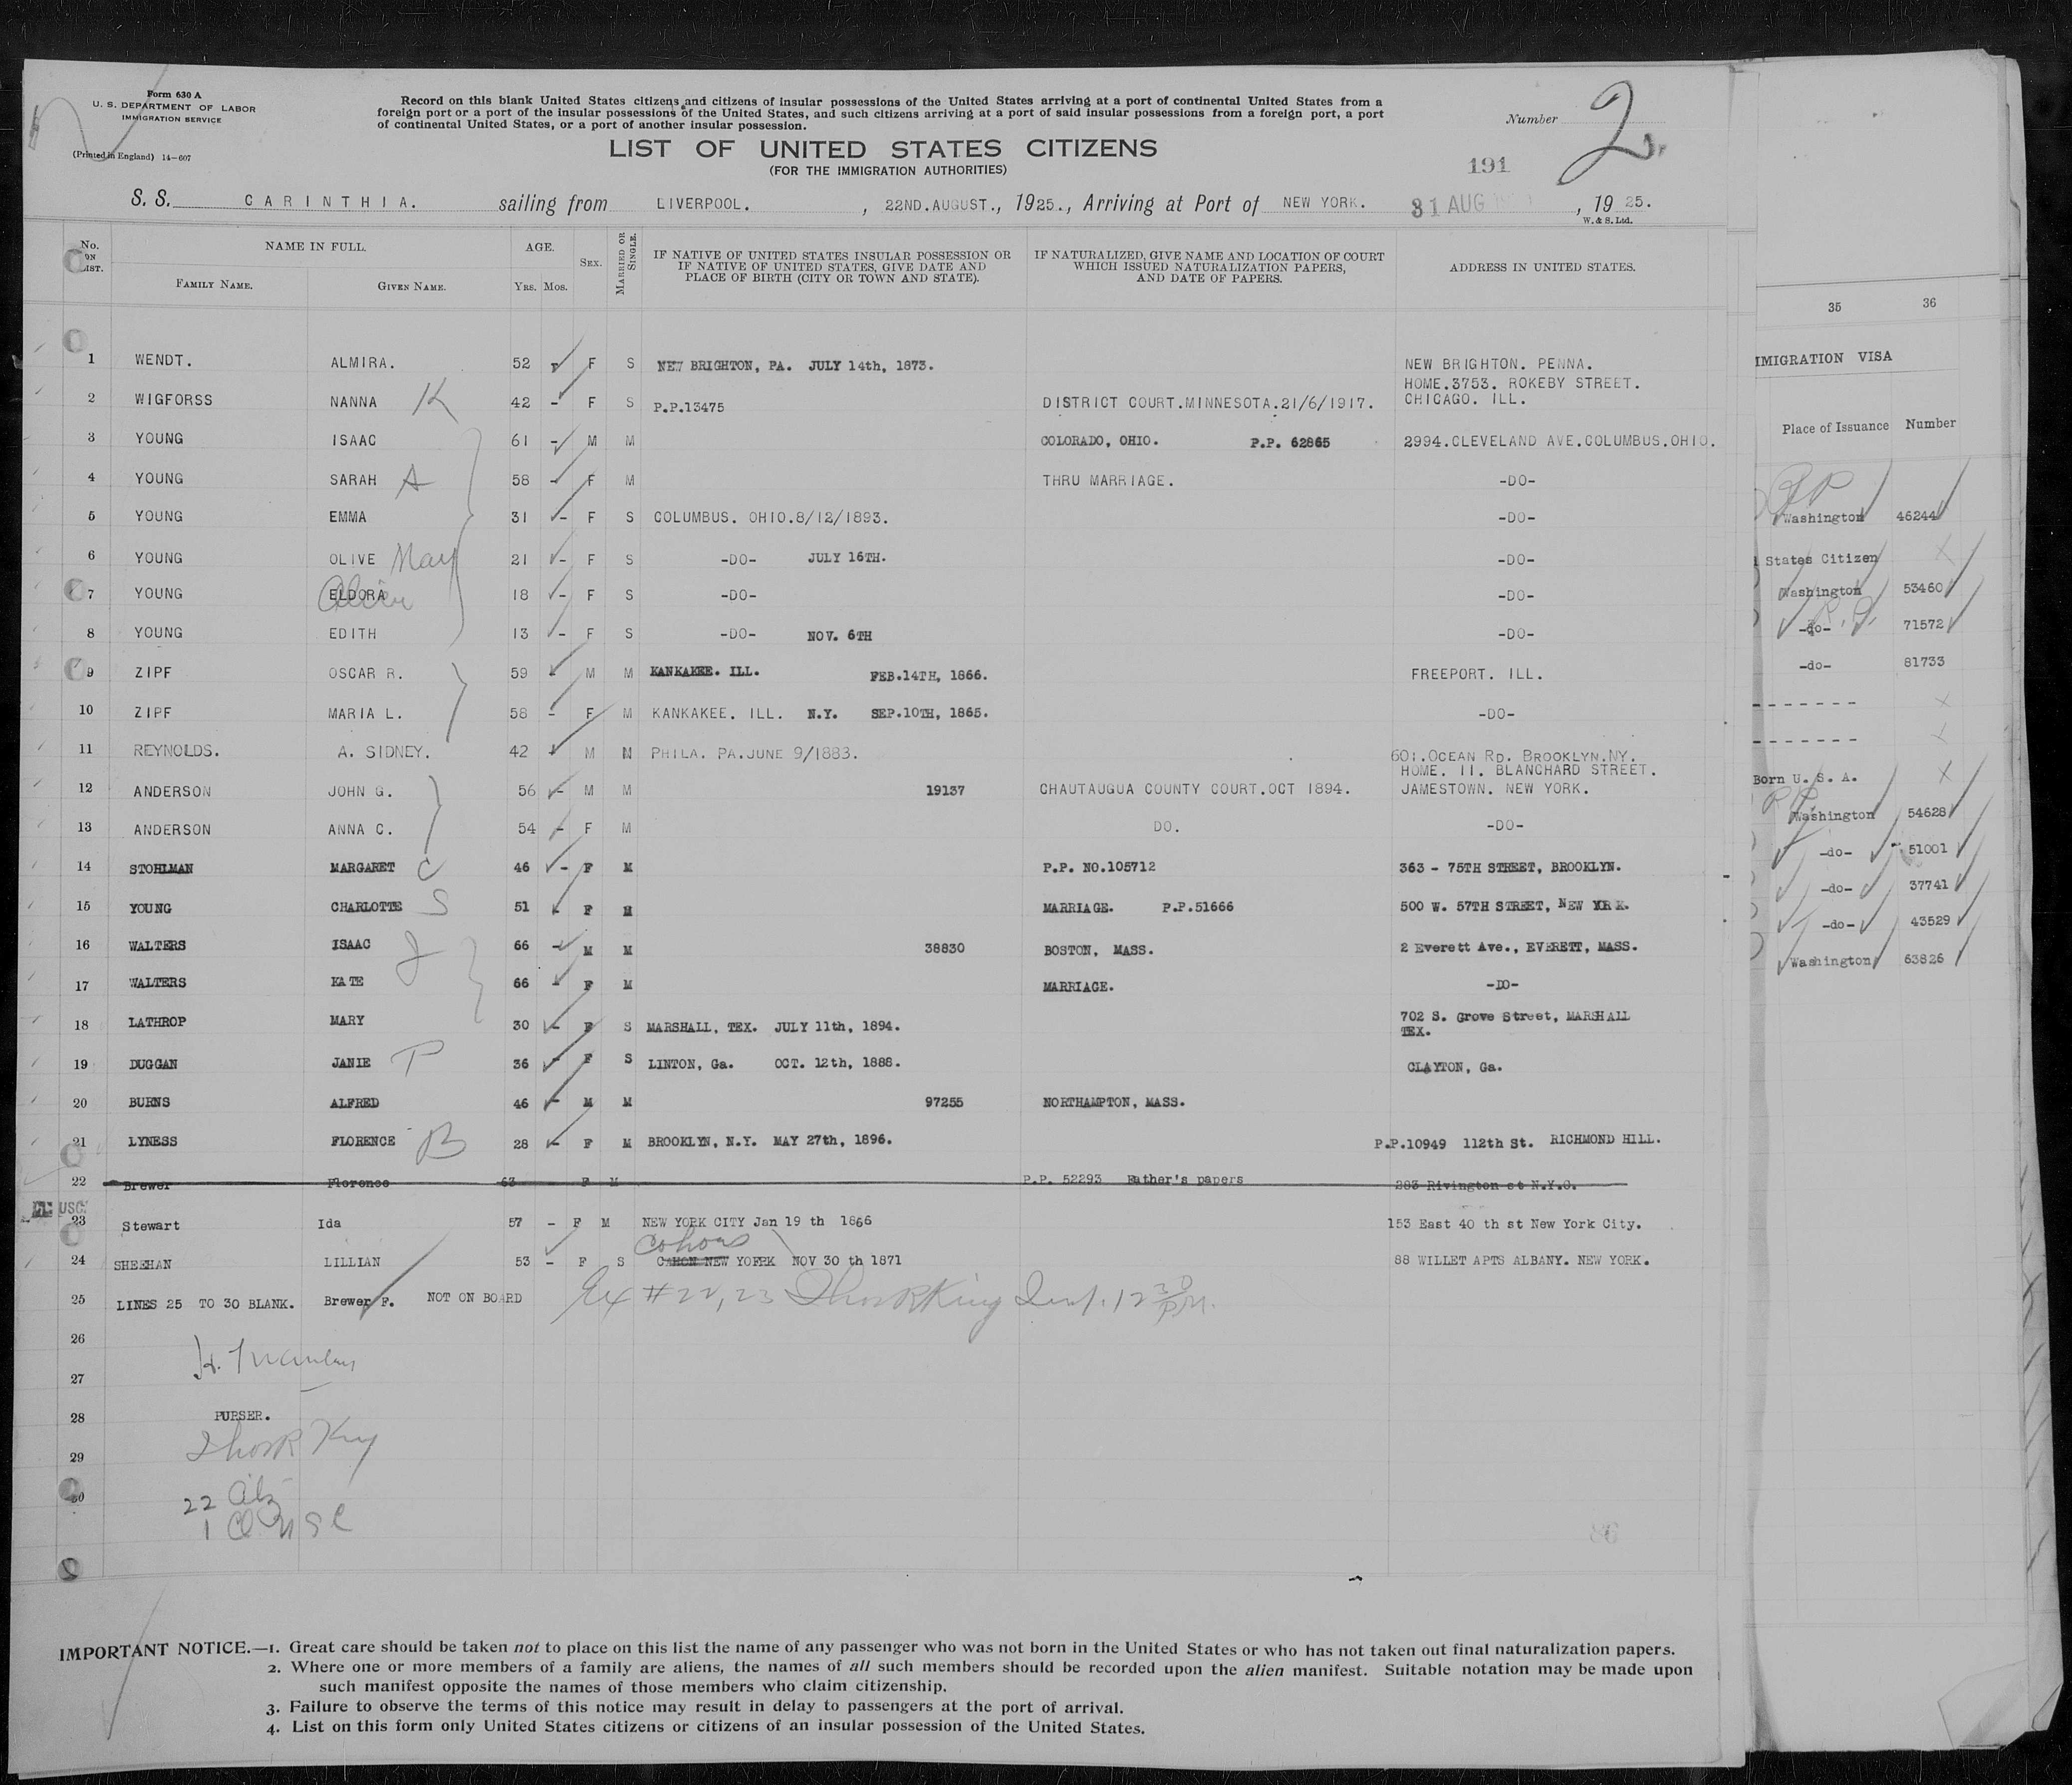 Form 630 A
U. S. DEPARTMENT OF LABOR
IMMIGRATION SERVICE
(Printed in England) 14-607
Record on this blank United States citizens and citizens of insular possessions of the United States arriving at a port of continental United States from a
foreign port or a port of the insular possessions of the United States, and such citizens arriving at a port of said insular possessions from a foreign port, a port
of continental United States, or a port of another insular possession.
Number 2
LIST OF UNITED STATES CITIZENS
(FOR THE IMMIGRATION AUTHORITIES)
191
S. S. CARINTHIA. sailing from LIVERPOOL. , 22ND.AUGUST., 1925., Arriving at Port of NEW YORK. 31 AUG , 19 25.
W. & S. Ltd.
No. ON LIST. NAME IN FULL. AGE. SEX. MARRIED OR SINGLE. IF NATIVE OF UNITED STATES INSULAR POSSESSION OR IF NATIVE OF UNITED STATES, GIVE DATE AND PLACE OF BIRTH (CITY OR TOWN AND STATE). IF NATURALIZED, GIVE NAME AND LOCATION OF COURT WHICH ISSUED NATURALIZATION PAPERS, AND DATE OF PAPERS. ADDRESS IN UNITED STATES.
FAMILY NAME. GIVEN NAME. YRS. MOS.
1 WENDT. ALMIRA. 52 F S NEW BRIGHTON, PA. JULY 14th, 1873. NEW BRIGHTON. PENNA.
HOME.3753. ROKEBY STREET.
2 WIGFORSS NANNA K 42 - F S P.P.13475 DISTRICT COURT.MINNESOTA.21/6/1917. CHICAGO. ILL.
3 YOUNG ISAAC 61 - M M COLORADO, OHIO. P.P. 62865 2994.CLEVELAND AVE.COLUMBUS.OHIO.
4 YOUNG SARAH A 58 - F M THRU MARRIAGE. -DO-
5 YOUNG EMMA 31 - F S COLUMBUS. OHIO.8/12/1893. -DO-
6 YOUNG OLIVE May 21 - F S -DO- JULY 16TH. -DO-
7 YOUNG ELDORA 18 - F S -DO- -DO-
8 YOUNG EDITH 13 - F S -DO- NOV. 6TH -DO-
9 ZIPF OSCAR R. 59 M M KANKAKEE. ILL. FEB.14TH, 1866. FREEPORT. ILL.
10 ZIPF MARIA L. 58 - F M KANKAKEE. ILL. N.Y. SEP.10TH, 1865. -DO-
11 REYNOLDS. A. SIDNEY. 42 M M PHILA. PA.JUNE 9/1883. 601.OCEAN RD. BROOKLYN.NY.
HOME. 11. BLANCHARD STREET.
12 ANDERSON JOHN G. 56 - M M 19137 CHAUTAUGUA COUNTY COURT.OCT 1894. JAMESTOWN. NEW YORK.
13 ANDERSON ANNA C. 54 - F M DO. -DO-
14 STOHLMAN MARGARET C 46 - F M P.P. NO.105712 363 - 75TH STREET, BROOKLYN.
15 YOUNG CHARLOTTE S 51 F M MARRIAGE. P.P.51666 500 W. 57TH STREET, NEW YORK.
16 WALTERS ISAAC J 66 - M M 38830 BOSTON, MASS. 2 Everett Ave., EVERETT, MASS.
17 WALTERS KATE 66 - F M MARRIAGE. -DO-
18 LATHROP MARY 30 - F S MARSHALL, TEX. JULY 11th, 1894. 702 S. Grove Street, MARSHALL
TEX.
19 DUGGAN JANIE P 36 - F S LINTON, Ga. OCT. 12th, 1888. CLAYTON, Ga.
20 BURNS ALFRED 46 - M M 97255 NORTHAMPTON, MASS.
21 LYNESS FLORENCE B 28 - F M BROOKLYN, N.Y. MAY 27th, 1896. P.P.10949 112th St. RICHMOND HILL.
22 Brewer Florence 63 F M P.P. 52293 Father's papers 283 Rivington st N.Y.C.
USC.
23 Stewart Ida 57 - F M NEW YORK CITY Jan 19 th 1866 153 East 40 th st New York City.
Cohoes
24 SHEEHAN LILLIAN 53 - F S NEW YOFRK NOV 30 th 1871 88 WILLET APTS ALBANY. NEW YORK.
25 LINES 25 TO 30 BLANK. Brewer F. NOT ON BOARD Ex #22, 23 Insp. 12 30 PM.
26
27
28 PURSER.
29
30
22
1
IMPORTANT NOTICE.—1. Great care should be taken not to place on this list the name of any passenger who was not born in the United States or who has not taken out final naturalization papers.
2. Where one or more members of a family are aliens, the names of all such members should be recorded upon the alien manifest. Suitable notation may be made upon
such manifest opposite the names of those members who claim citizenship.
3. Failure to observe the terms of this notice may result in delay to passengers at the port of arrival.
4. List on this form only United States citizens or citizens of an insular possession of the United States.
35 36
IMMIGRATION VISA
Place of Issuance Number
Washington 46244
States Citizen
Washington 53460
-do- 71572
-do- 81733
Born U. S. A.
Washington 54628
-do- 51001
-do- 37741
-do- 43529
Washington 63826